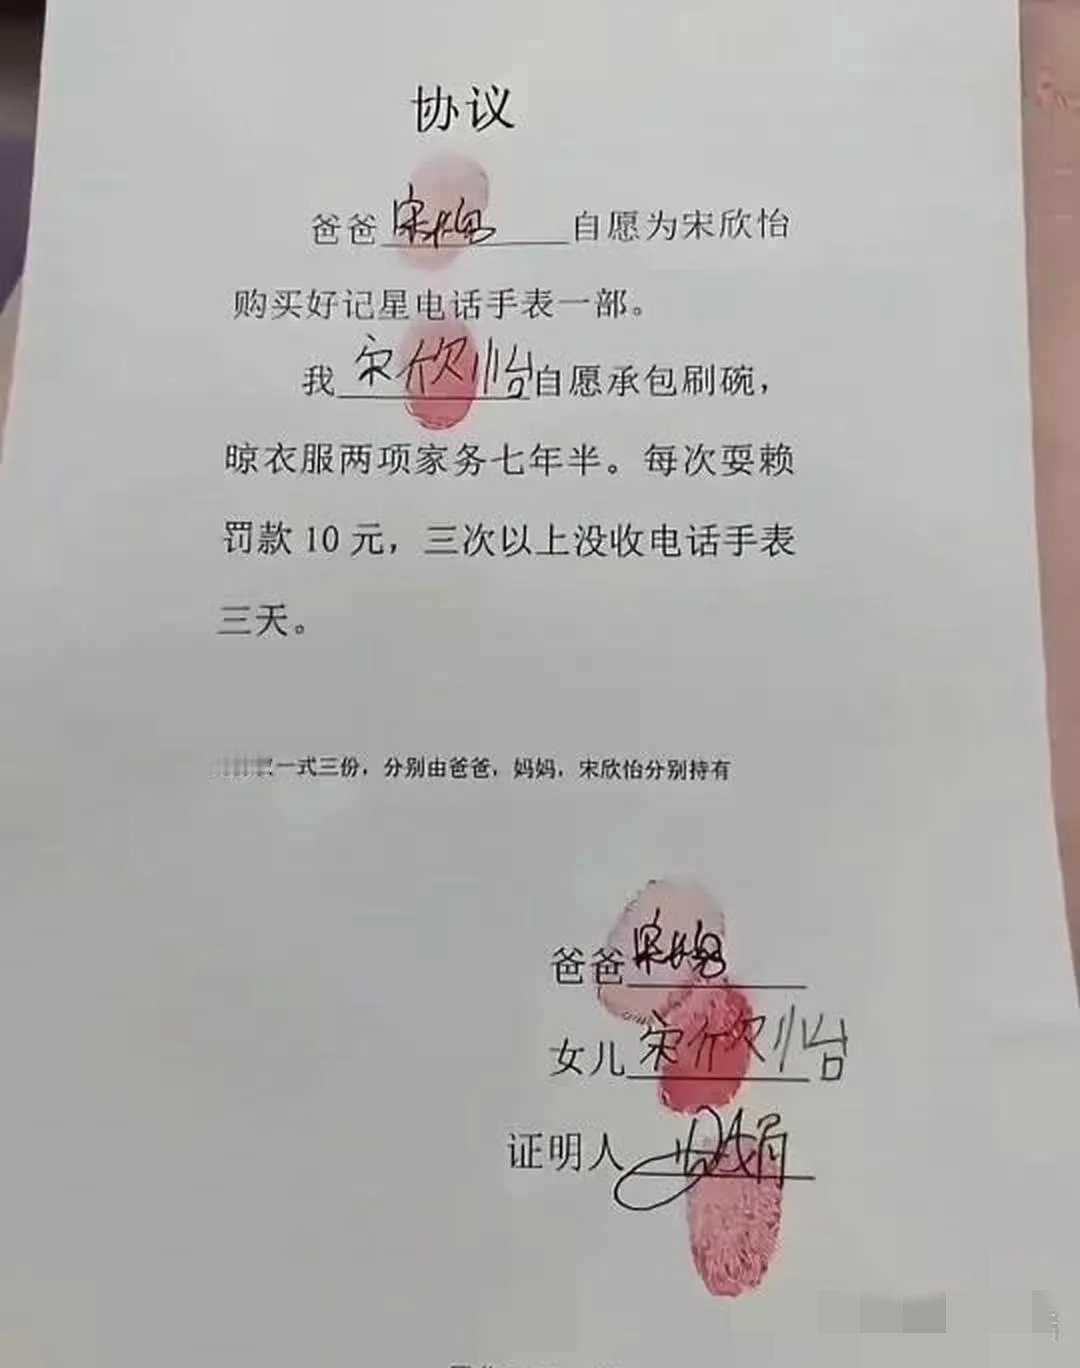 协议
爸爸 宋 自愿为宋欣怡
购买好记星电话手表一部。
我 宋欣怡 自愿承包刷碗，
晾衣服两项家务七年半。每次耍赖
罚款10元，三次以上没收电话手表
三天。
一式三份，分别由爸爸，妈妈，宋欣怡分别持有
爸爸 宋
女儿 宋欣怡
证明人